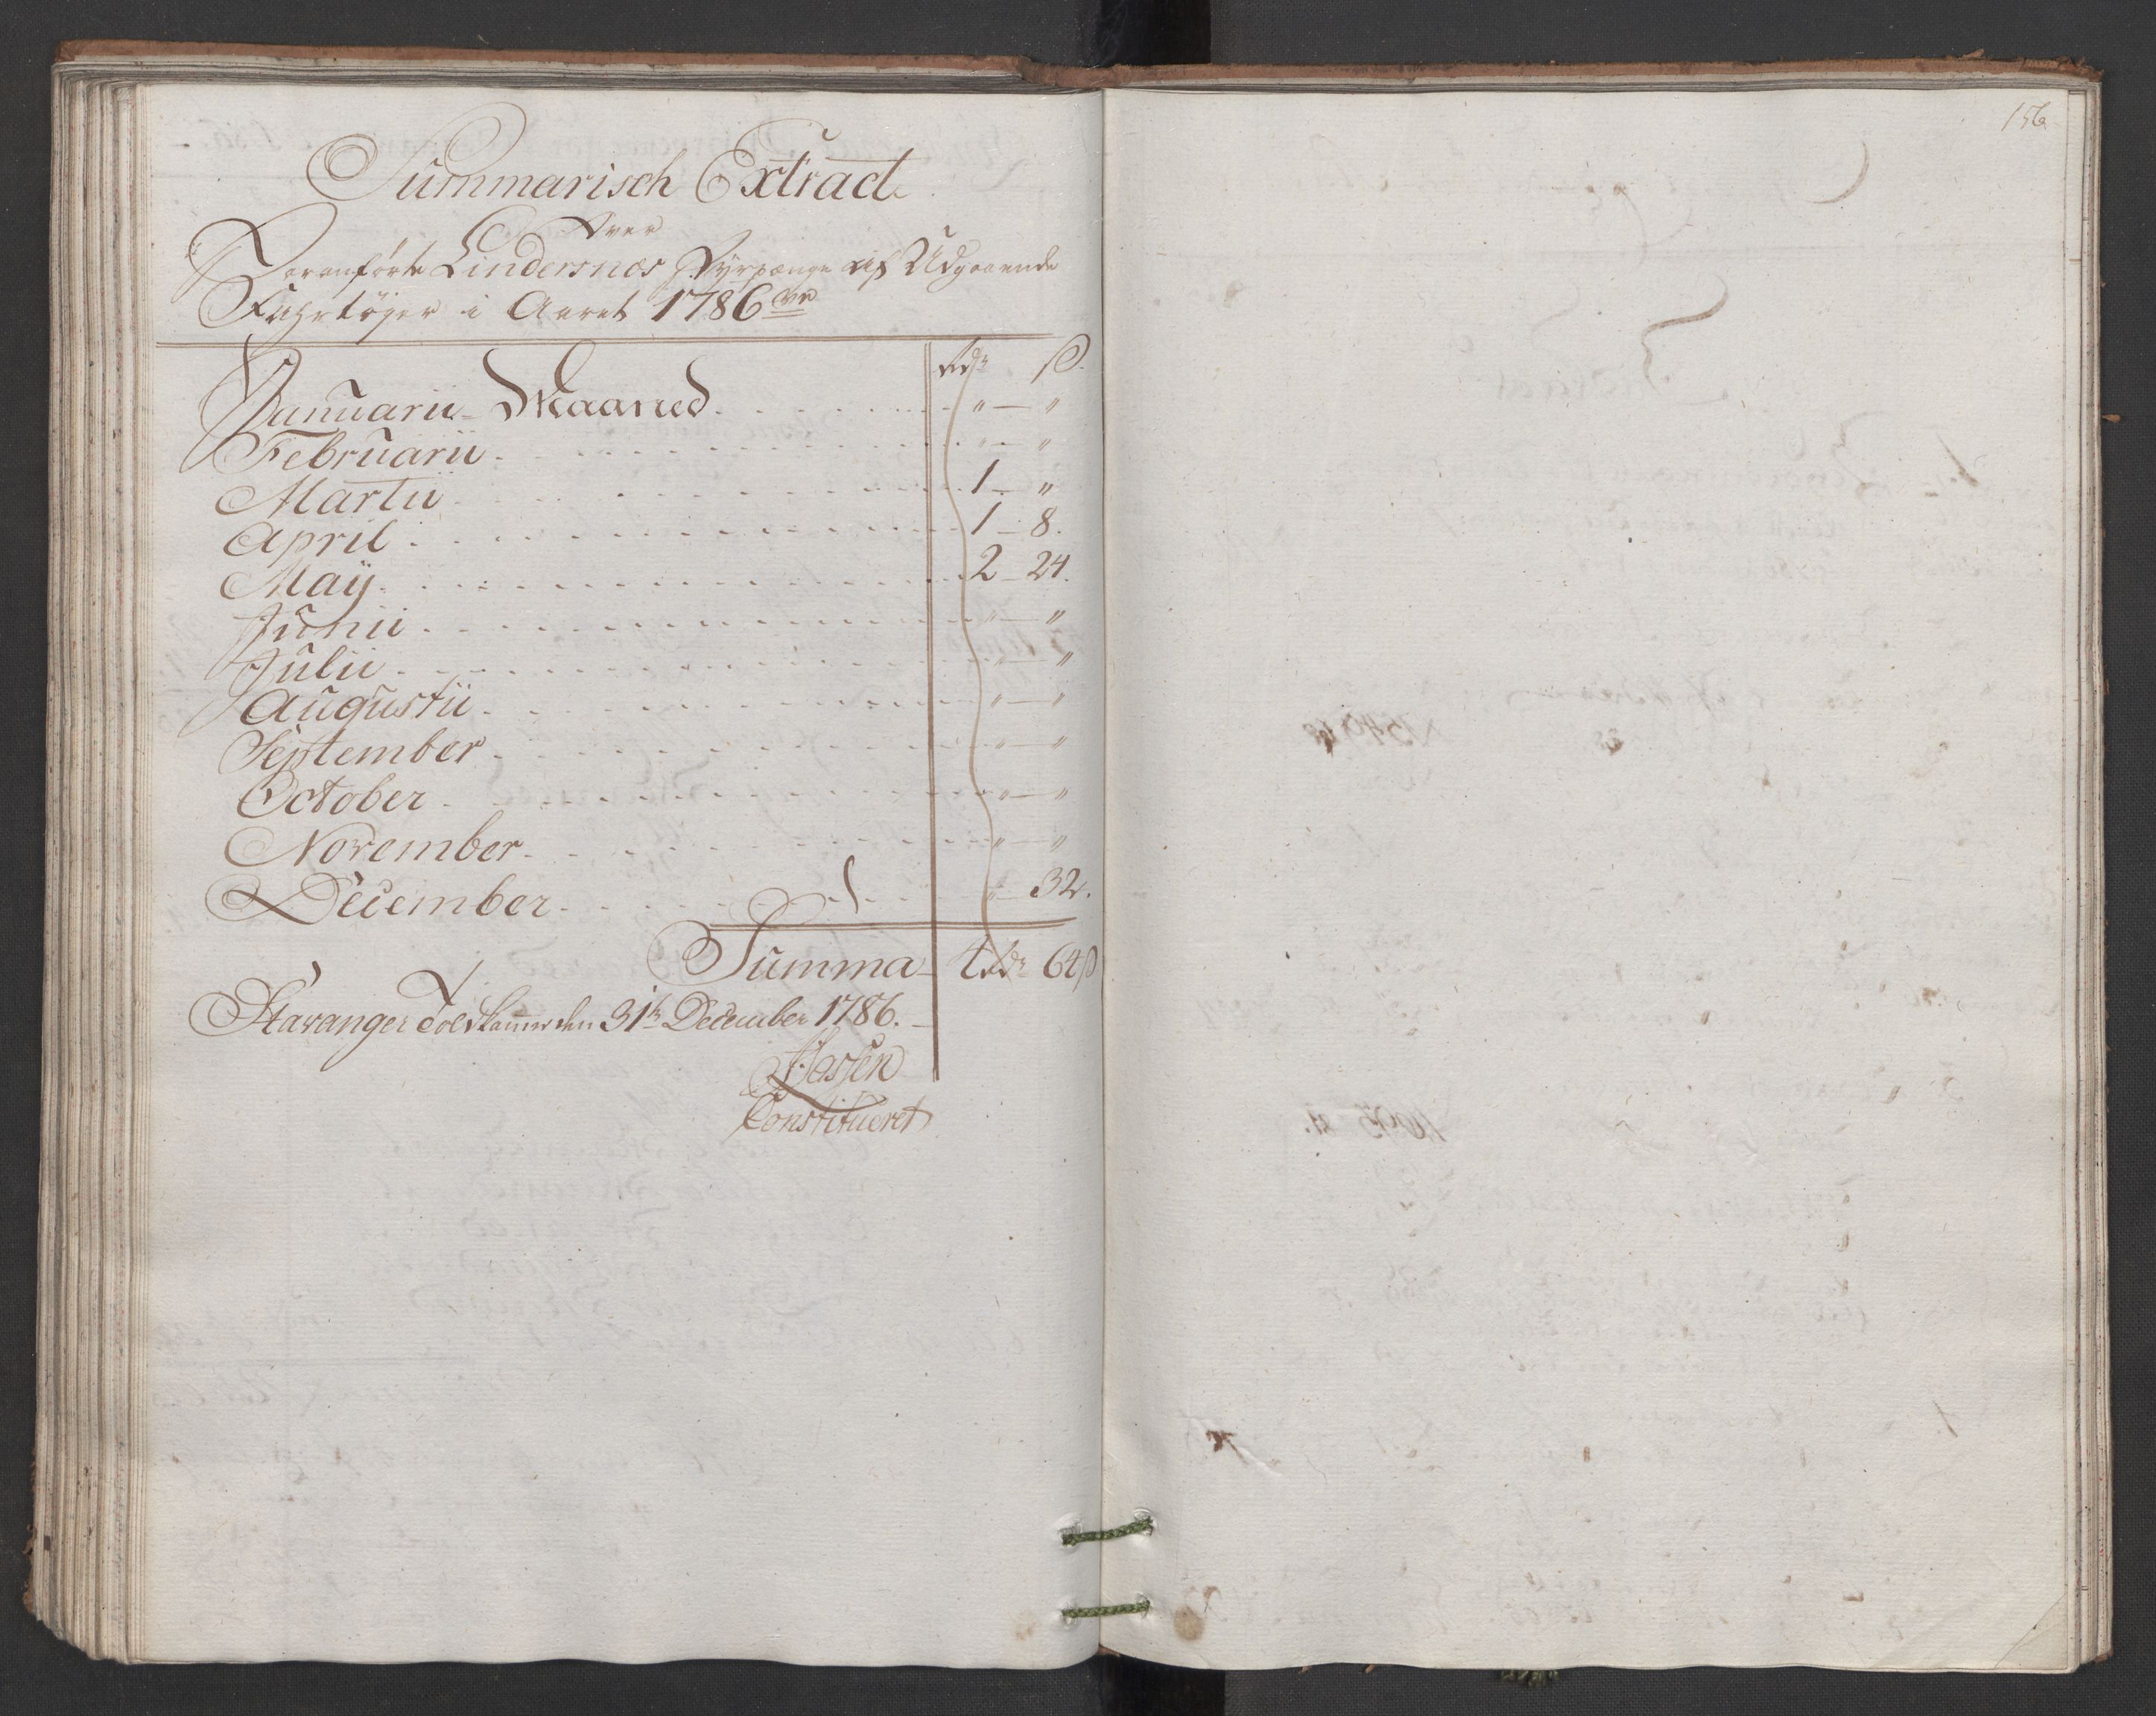 156
Summarisch Extract
Over
Foranførte Lindersnæs Fyrpænge af Udgaaende
Fahrtøyer i Aaret 1786
Rdr ß.
Januarii Maaned. " — "
Februarii " — "
Martii 1 — "
April 1 — 8.
Maÿ. 2 — 24.
Junii " — "
Julii " — "
Augustii " — "
September " — "
October " — "
November " — "
December " — 32.
Summa 4 Rdr 64 ß
Stavanger Toldkammer den 31te December 1786.
Constitueret